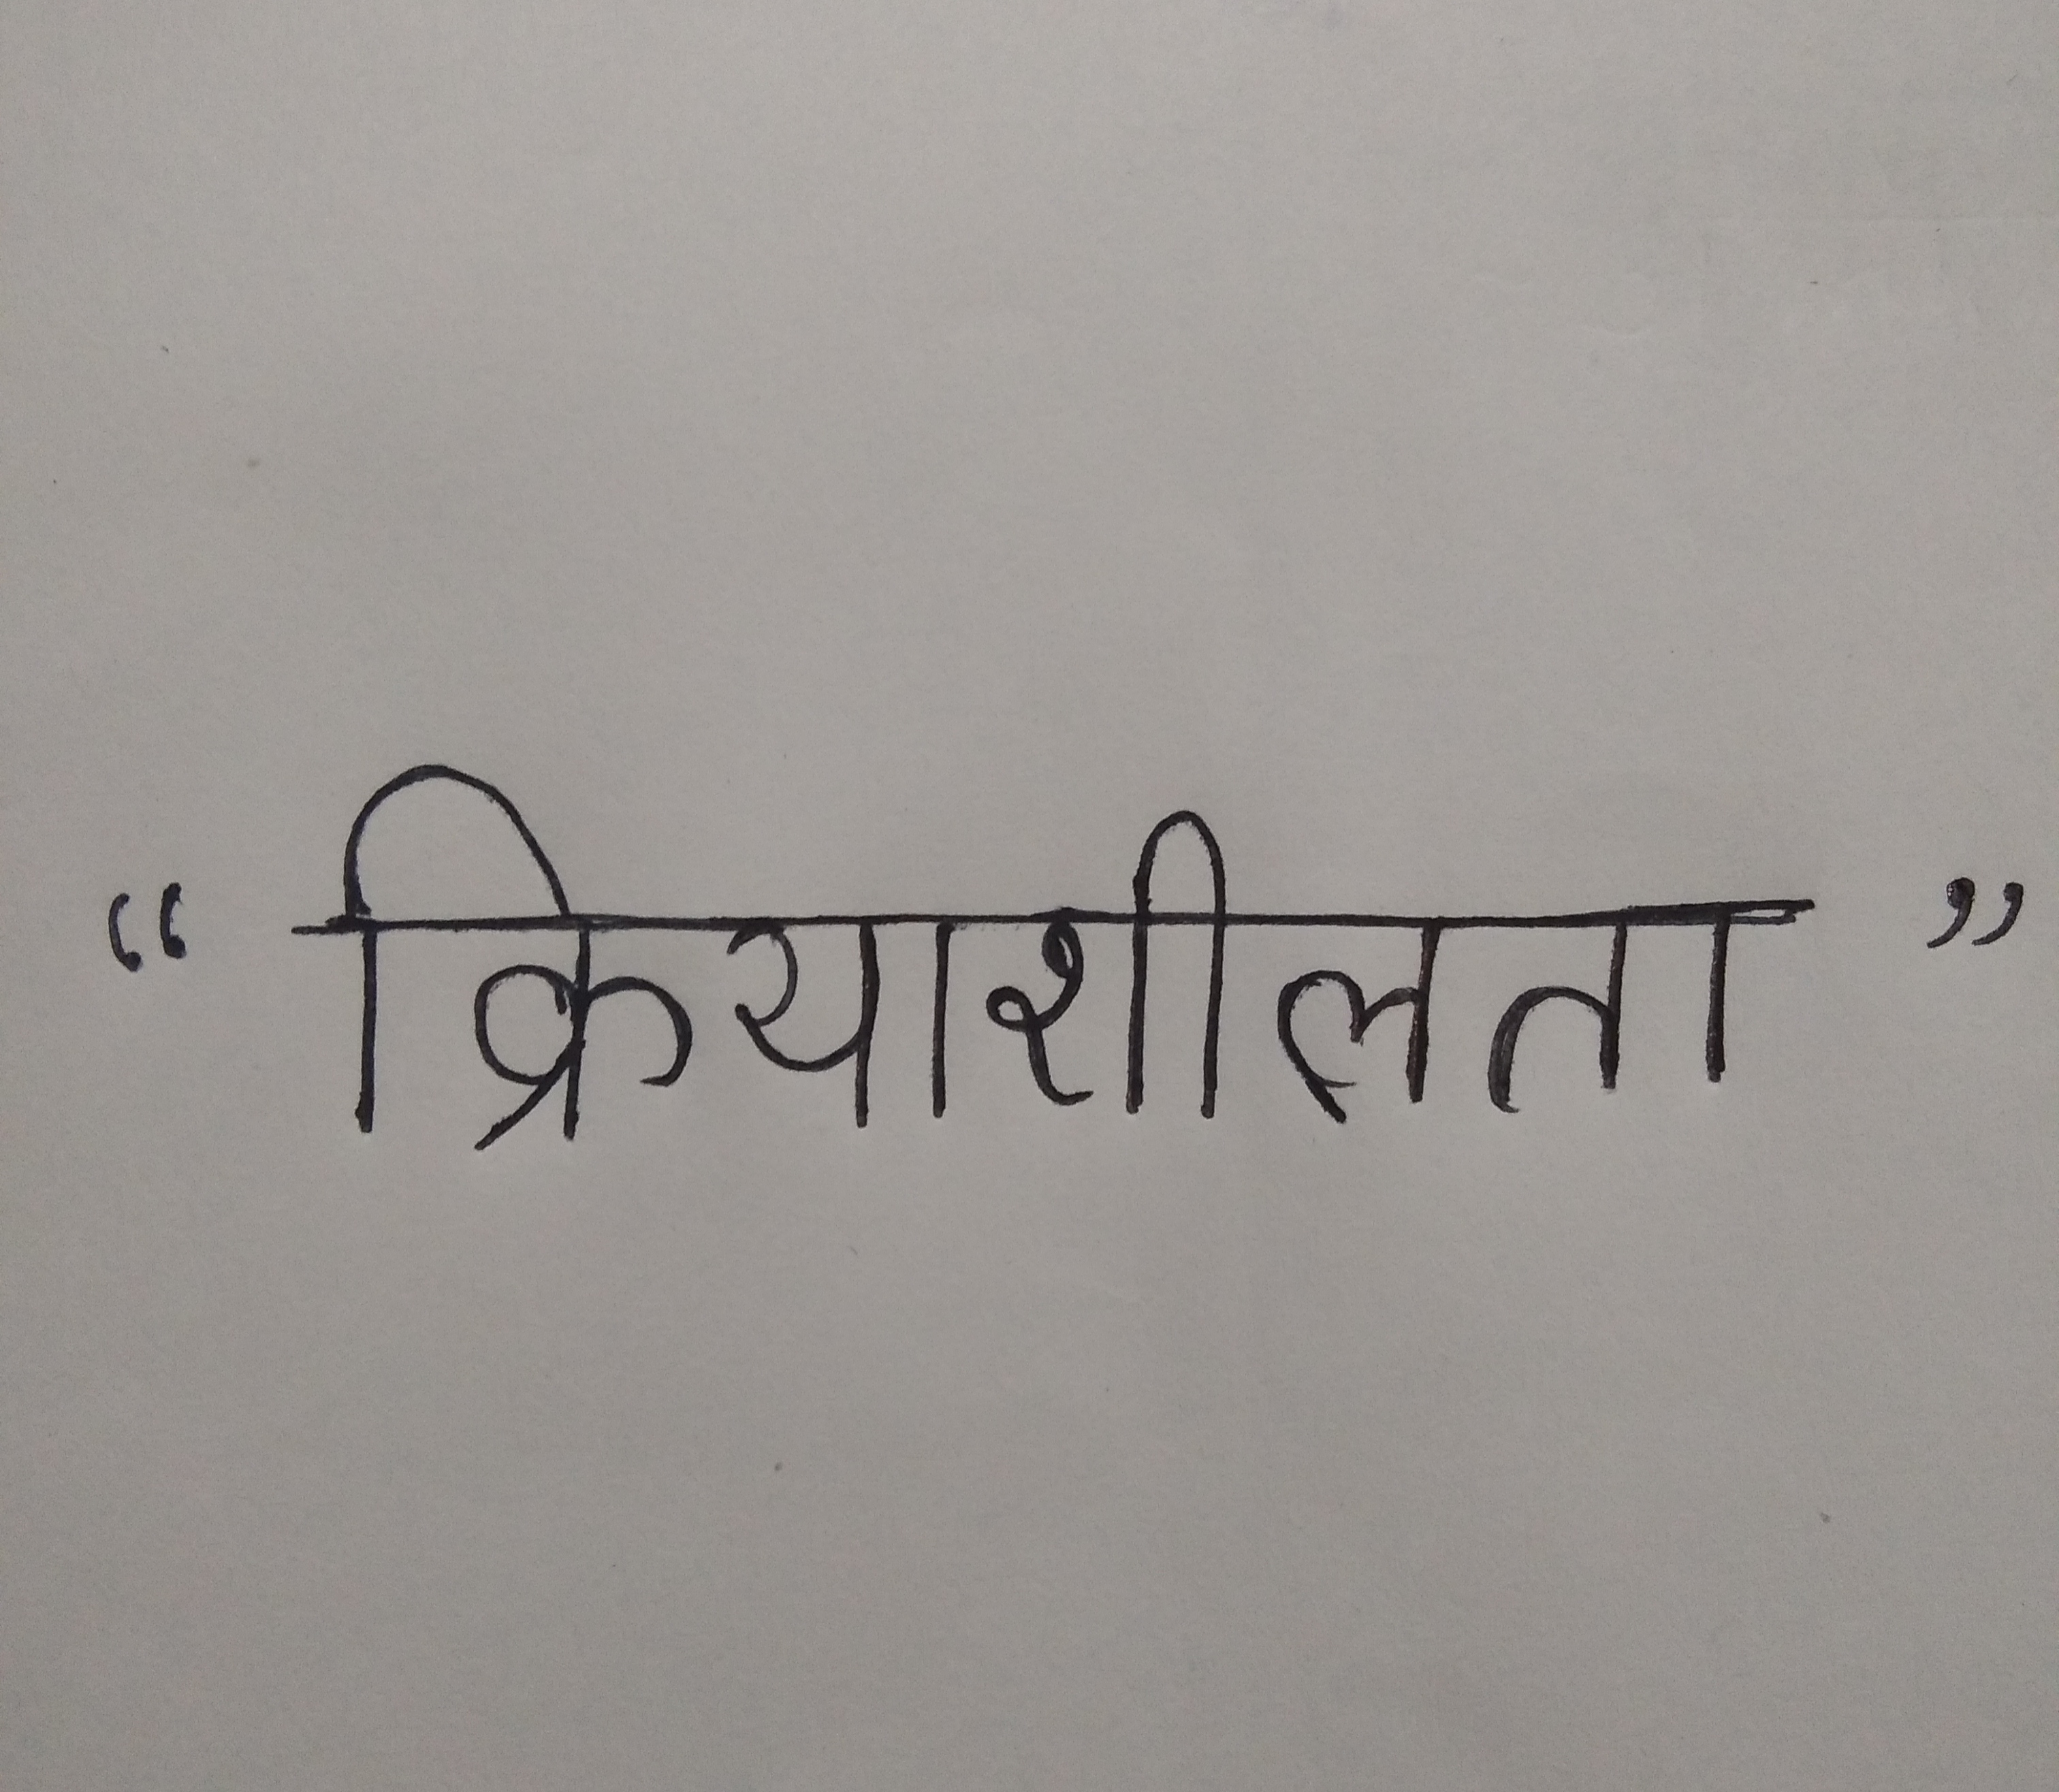 “ क्रियाशीलता ”